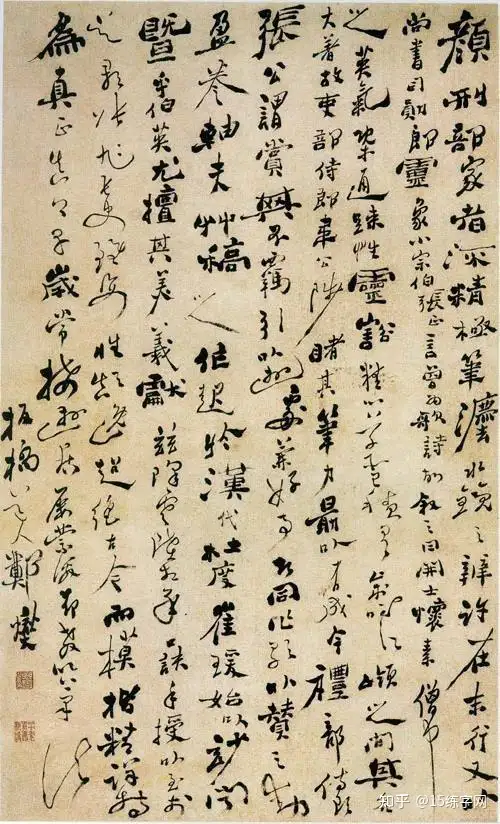 顏刑部家者流精極筆法水鏡之辨許在末行又以
尚書司勳郎盧象小宗伯張正言曾為歌詩故敘之曰開士懷素僧中
之英氣概通疎性靈豁暢精心草聖積有歲時江嶺之間其名
大著故吏部侍郎韋公陟睹其筆力勗以有成今禮部侍郎
張公謂賞其不羈引以遊處兼好事者同作歌以贊之動
盈卷軸夫草稿之作起於漢代杜度崔瑗始以妙聞
暨乎伯英尤擅其美羲獻茲降虞陸相承口訣手授以至於
吳郡張旭長史雖姿性顛逸超絕古今而模楷精詳特
為真正真卿早歲常接遊居屢蒙激勸教以筆法
板橋道人鄭燮
知乎 @15练字网